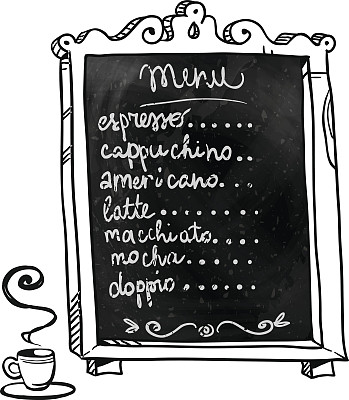 menu
espresso......
cappuchino..
americano...
latte.......
macchiato....
mocha.....
doppio.....